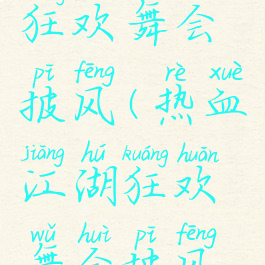 狂欢舞会
pī fēng rè xuè
披风(热血
jiāng hú kuáng huān
江湖狂欢
wǔ huì pī fēng
舞会披风